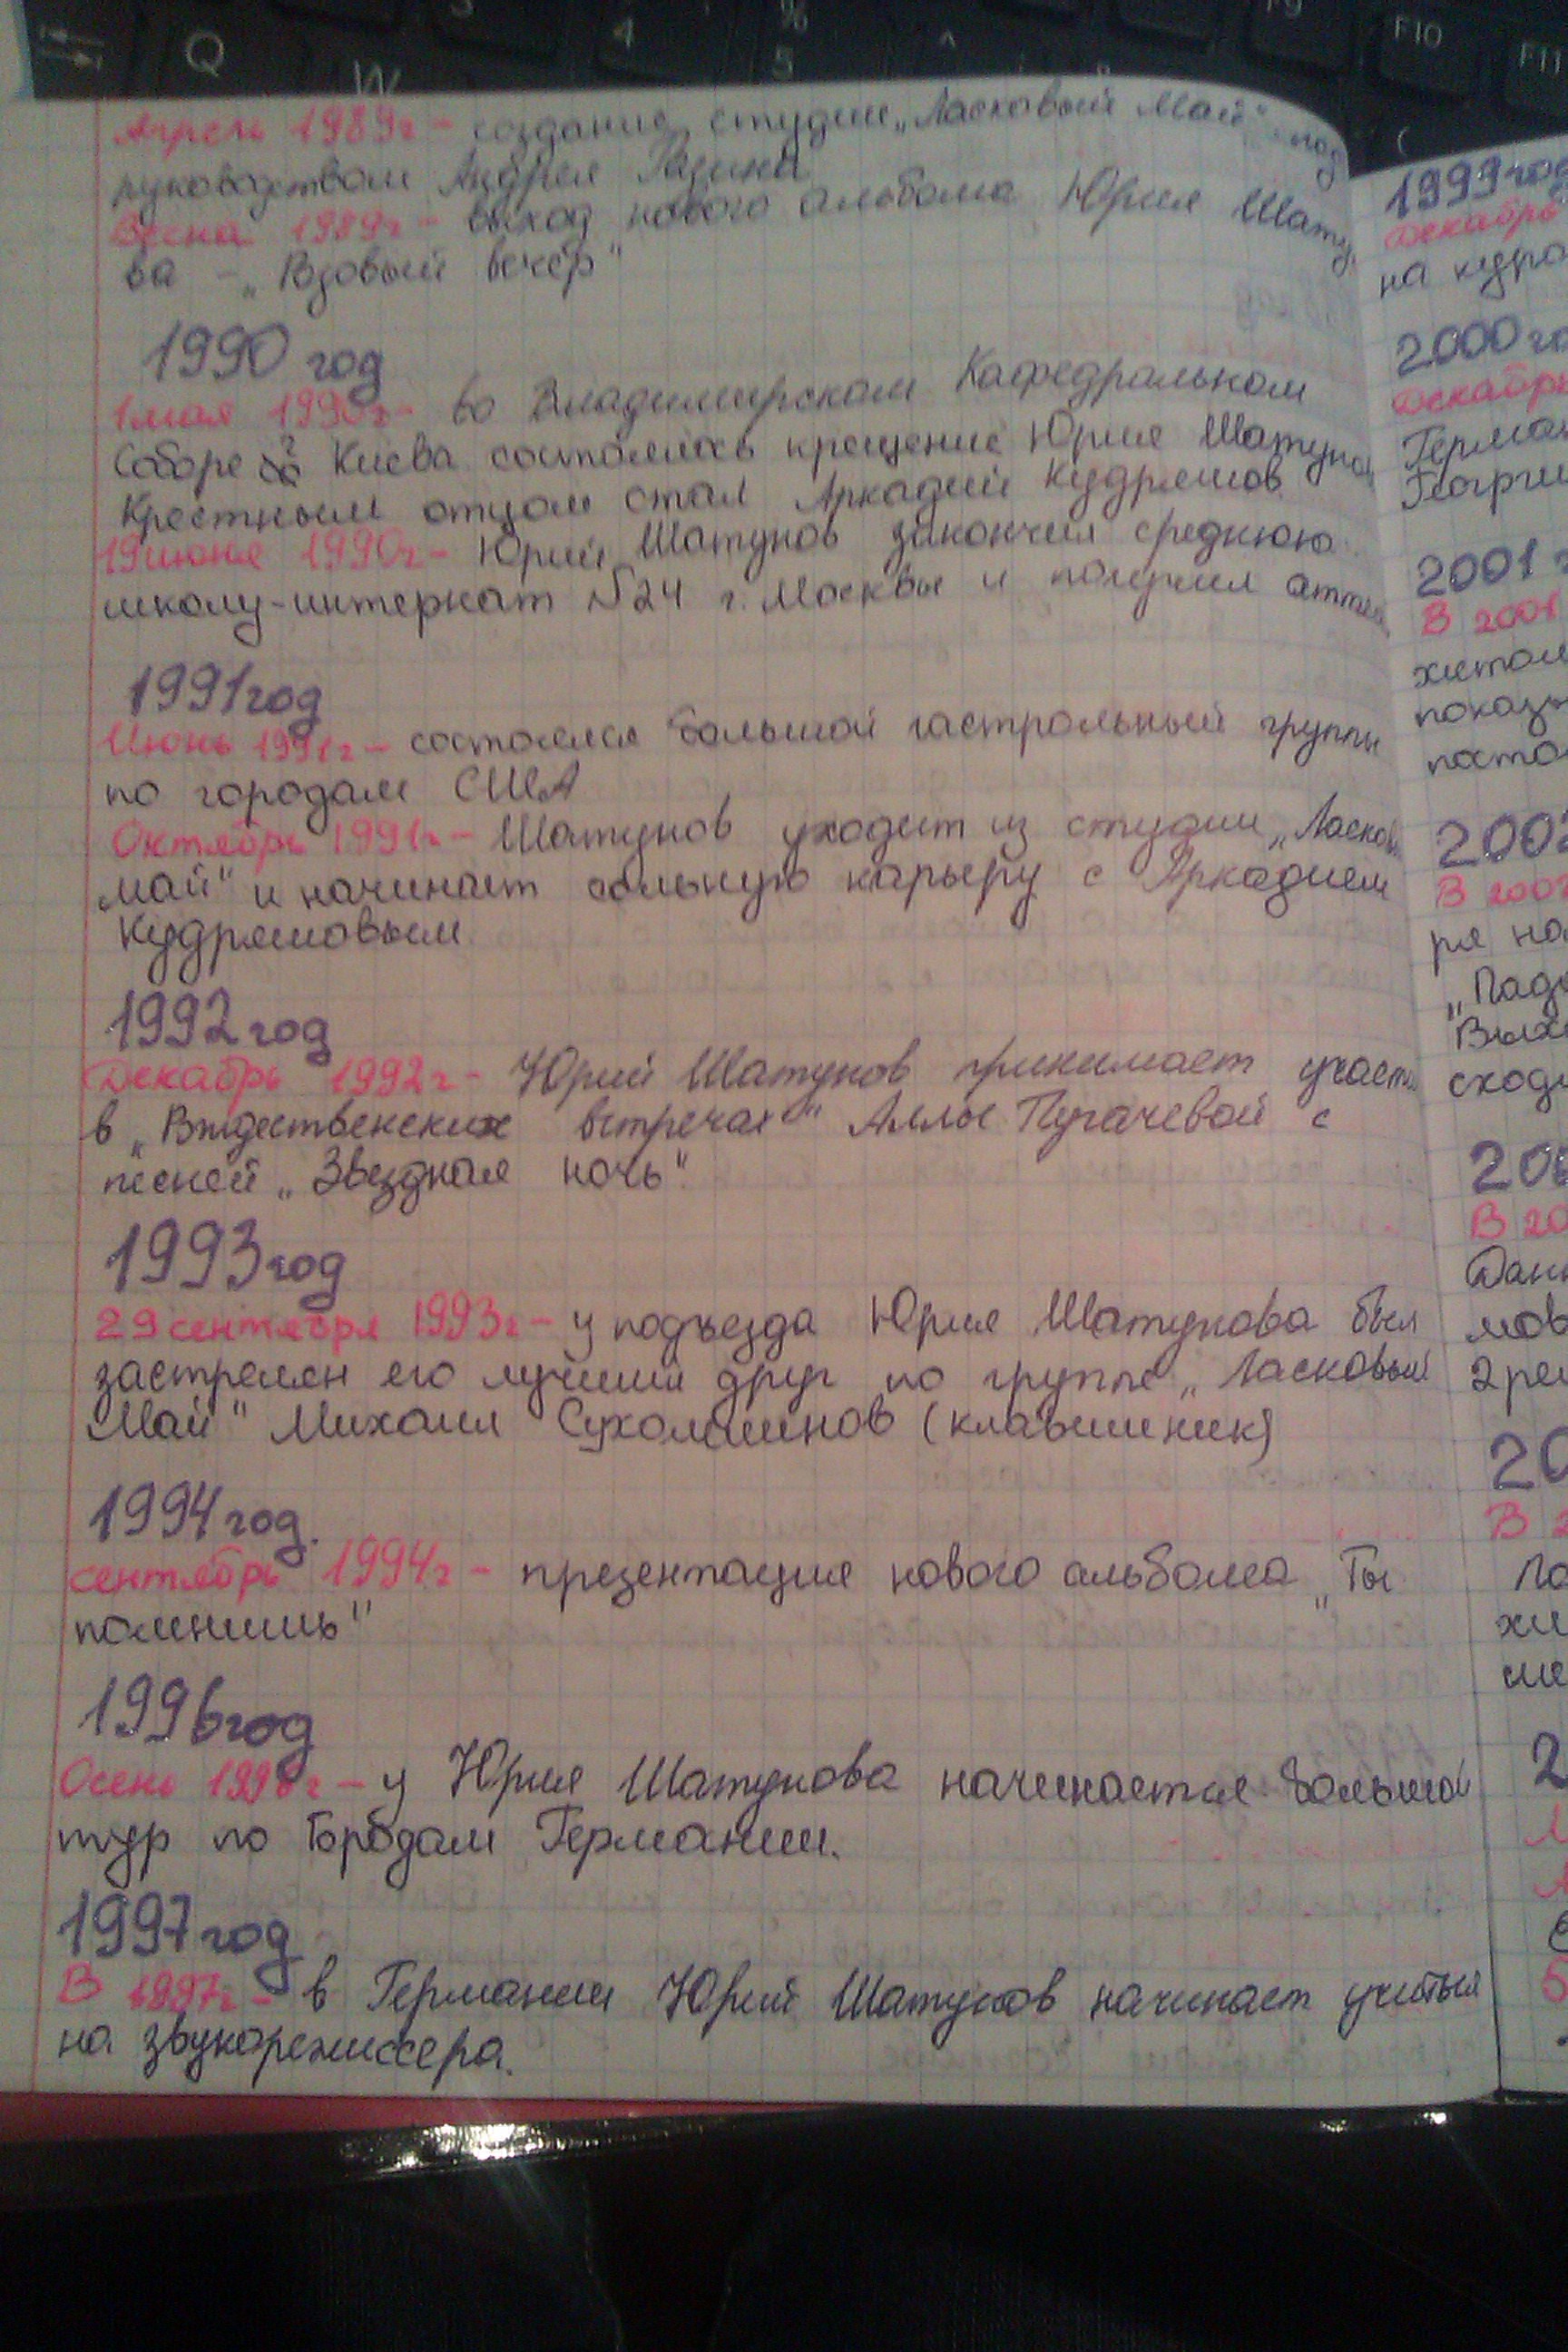 Апрель 1989г - создание студии „Ласковый Май" под
руководством Андрея Разина
Весна 1989г - выход нового альбома Юрия Шату
ва - „Рзовый вечер"
1990 год
1 мая 1990г - во Владимирском Кафедральном
Соборе г Киева состоялось крещение Юрия Шатунов
Крестным отцом стал Аркадий Кудряшов
19 июня 1990г - Юрий Шатунов закончил среднюю
школу-интернат №24 г. Москвы и получил аттес
1991 год
Июнь 1991г - состоялся большой гастрольный группы
по городам США
Октябрь 1991г - Шатунов уходит из студии „Ласков
май" и начинает сольную карьеру с Аркадием
Кудряшовым
1992 год
Декабрь 1992г - Юрий Шатунов принимает участ
в „Рждественских встречах" Аллы Пугачевой с
песней „Звездная ночь".
1993 год
29 сентября 1993г - у подъезда Юрия Шатунова был
застрелян его лучший друг по группе „Ласковый
Май" Михаил Сухомлинов (клавишник)
1994 год.
сентябрь 1994г - презентация нового альбома „Ты
помнишь"
1996 год
Осень 1996г - у Юрия Шатунова начинается большой
тур по Городам Германии.
1997 год
В 1997г - в Германии Юрий Шатунов начинает учиться
на звукорежиссера.
1999 год
Декабрь
на кудро
2000 го
Декабрь
Герман
Георги
2001 г
В 2001
хитом
показы
посто
2002
В 2002
ря на
„Паде
Вых
сходи
В 20
Дан
мов
2 ре
20
В 2
Ла
хи
Q
W
4
%
5
F9
F10
F11